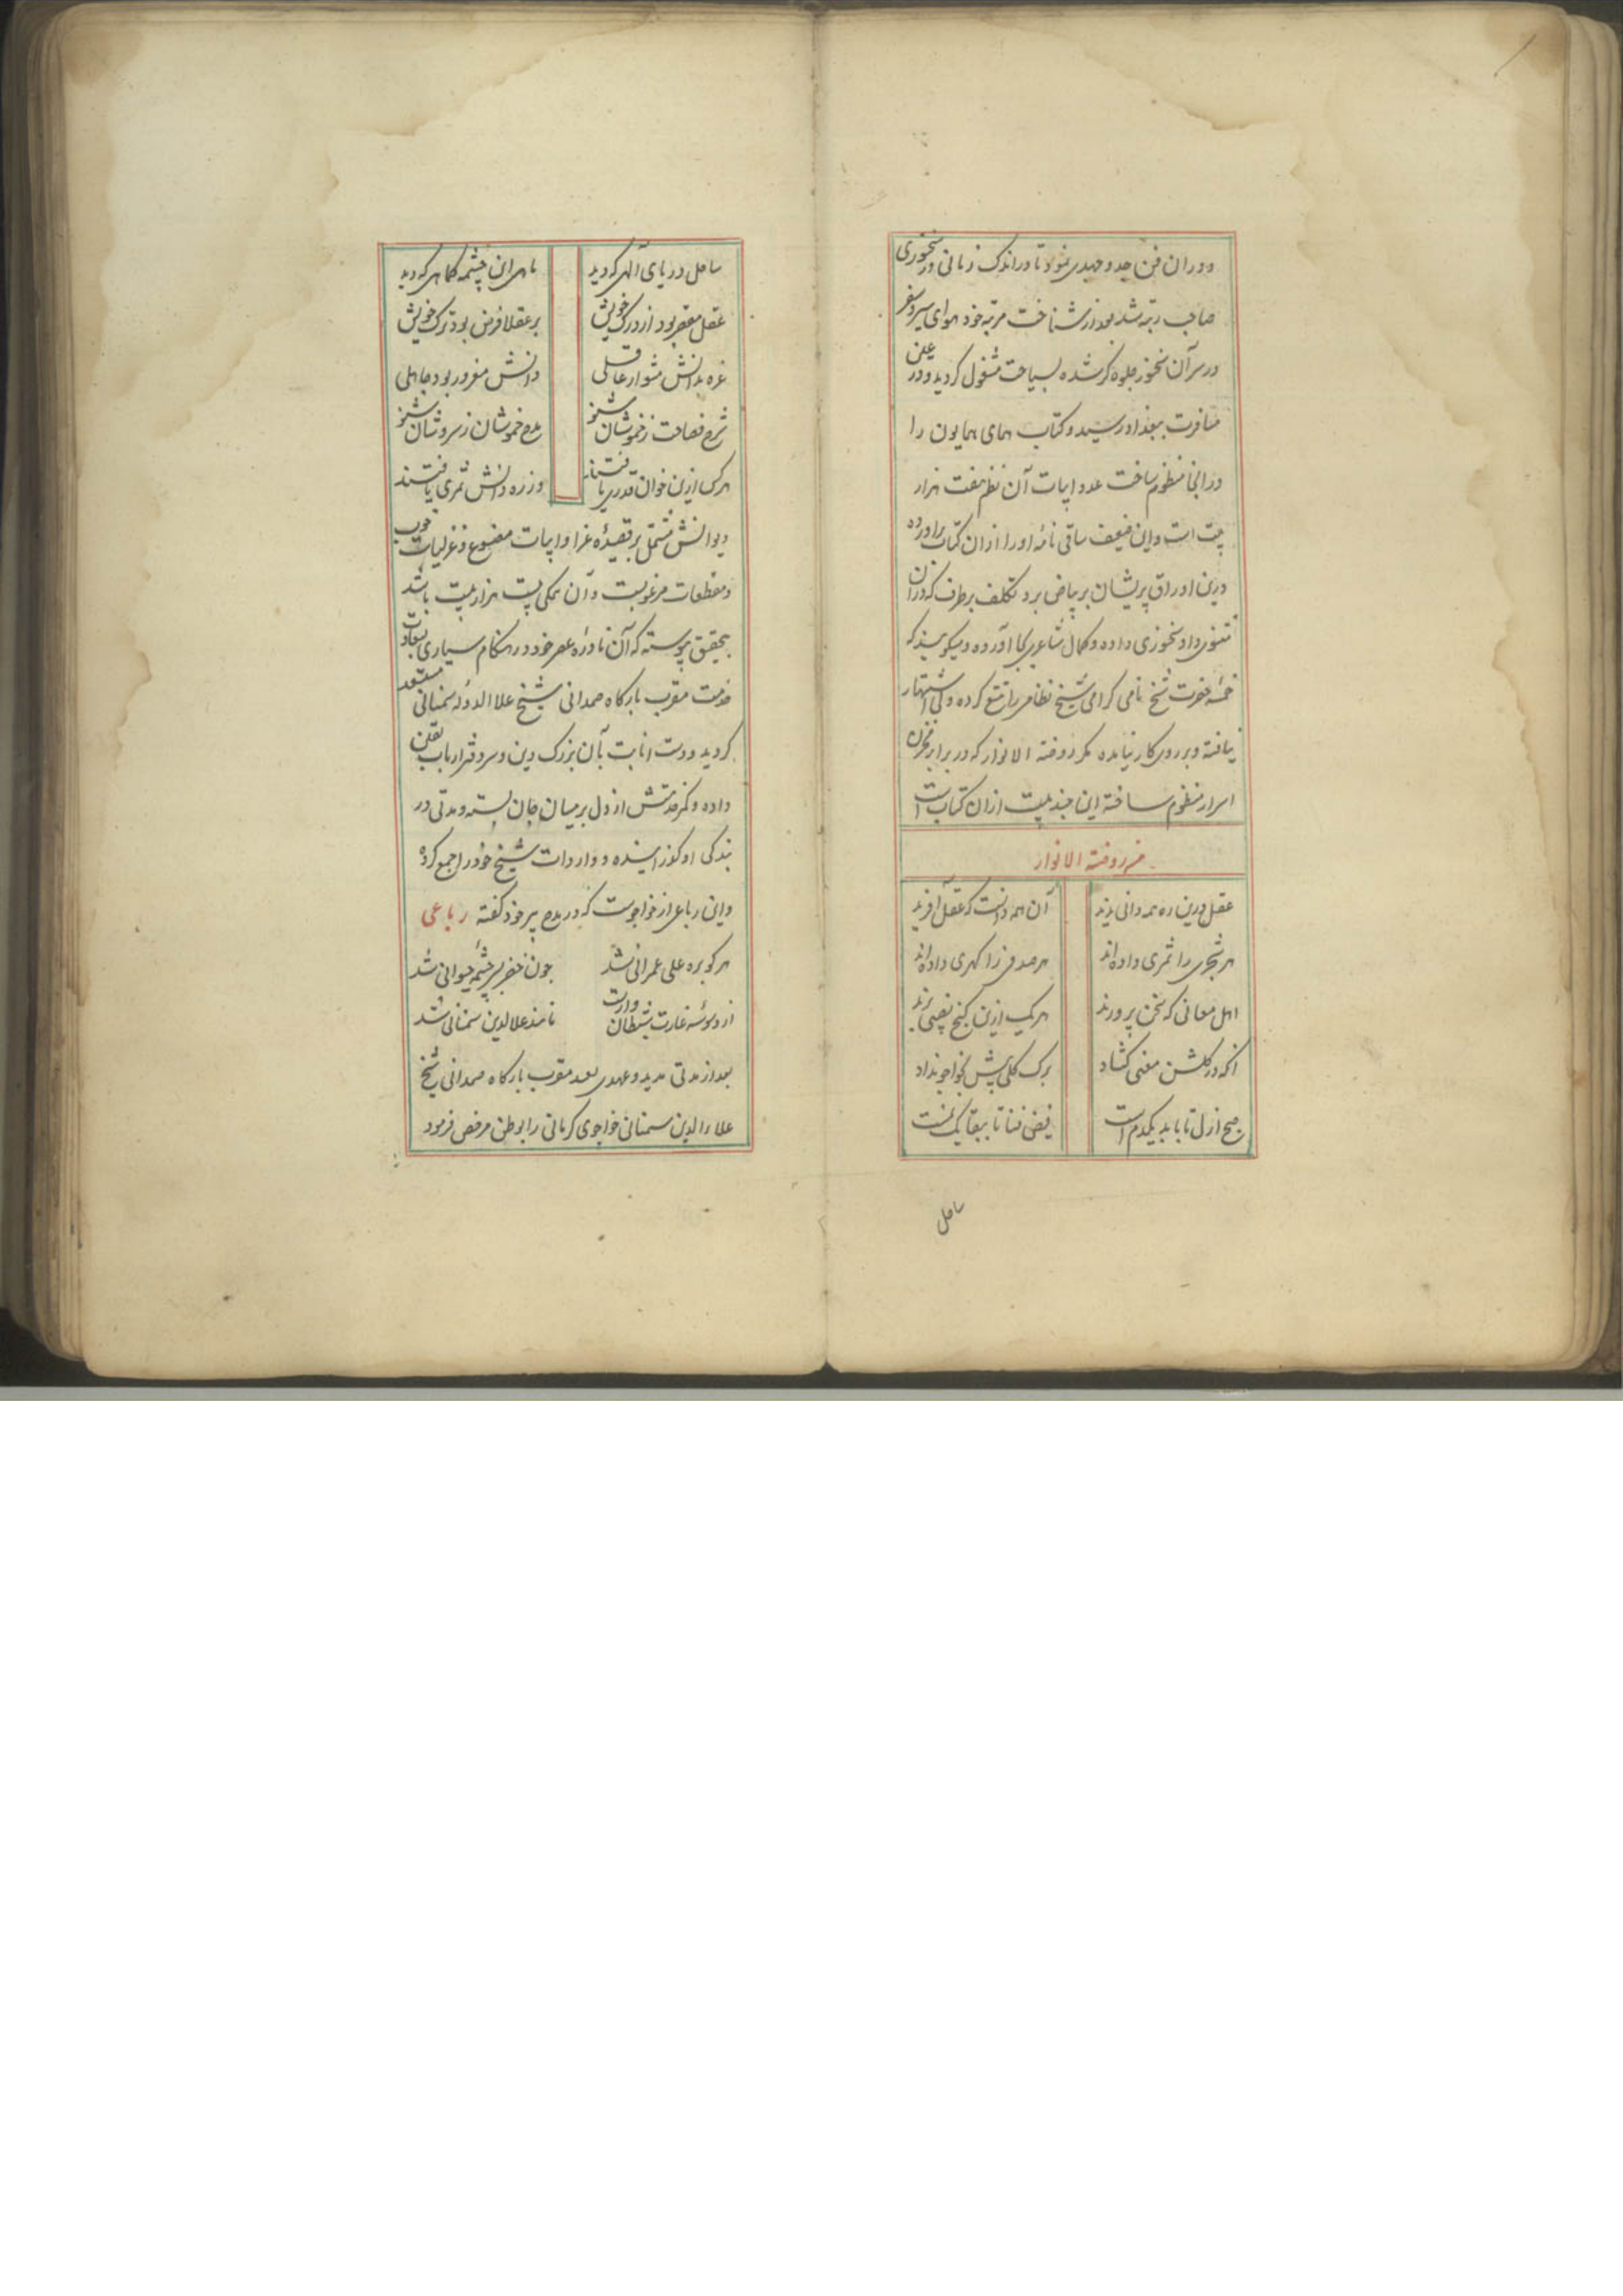 ودران فن جد و جهدی نمود تا در اندک زمانی در سخنوری
صاحب رتبه شد بعد از شناخت مرتبه خود هوای سیر و سفر
در سر آن سخنور جلوه گر شده بسیاحت مشغول گردید و در عین
مسافرت ببغداد رسید و کتاب همای همایون را
در انجا منظوم ساخت عدد ابیات آن نظم هفت هزار
بیت است و این ضعیف ساقی نامه او را از ان کتاب برآورده
درین اوراق پریشان بر بیاض برد تکلف برطرف که در ان
مثنوی داد سخنوری داده و کمال شاعری بجا آورده و میگویند که
خمسه حضرت شیخ نامی گرامی شیخ نظامی را تتبع کرده ولی اشتهار
نیافته و بر روی کار نیامده مگر روضة الانوار که در برابر مخزن
اسرار منظوم ساخته این چند بیت از ان کتاب است
من روضة الانوار
عقل درین ره همه دانی ندید آن همه دانست که عقل آفرید
هر شجری را ثمری داده‌اند هر صدفی را گهری داده‌اند
اهل معانی که سخن پرورند هر یک ازین گنج نصیبی برند
آنکه در گلشن معنی گشاد برگ گلی پیش بخواجو نداد
صبح ازل تا بابد یکدم است فیض فنا تا ببقا
ساحل
ساحل دریای الهی که دید ماهی ان چشمه کماهی که دید
عقل مقصر بود از درک خویش بر عقلا فرض بود ترک خویش
غره بدانش مشو ار عاقلی دانش مغرور بود جاهلی
شرح فصاحت ز خموشان شنو مدح خموشان ز سروشان شنو
هر کس ازین خوان قدری یافتند وز ره دانش ثمری یافتند
دیوانش مشتمل بر قصیده غرا و ابیات مصنوع و غزلیات خوب
و مقطعات مرغوبست و آن همگی بیست هزار بیت باشد
بتحقیق پیوسته که آن نادره عصر خود در هنگام سیاری بسعادت
خدمت مقرب بارگاه صمدانی شیخ علاالدوله سمنانی مستعد
گردید و دست انابت بآن بزرگ دین و سر دفتر ارباب یقین
داده و کمر خدمتش از دل بر میان جان بسته و مدتی در
بندگی او گذرانیده و واردات شیخ خود را جمع کرده
و این رباعی از خواجوست که در مدح پیر خود گفته رباعی
هر کو بره علی عمرانی شد چون خضر بسر چشمه حیوانی شد
از وسوسه غارت شیطان وارست مانند علا الدین سمنانی شد
بعد از مدتی مدید و عهدی بعید مقرب بارگاه صمدانی شیخ
علاء الدین سمنانی خواجوی کرمانی را بوطن مرخص فرمود